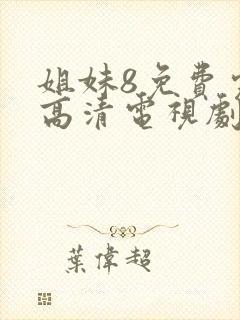 姐妹8免費
高清電視劇
葉偉超